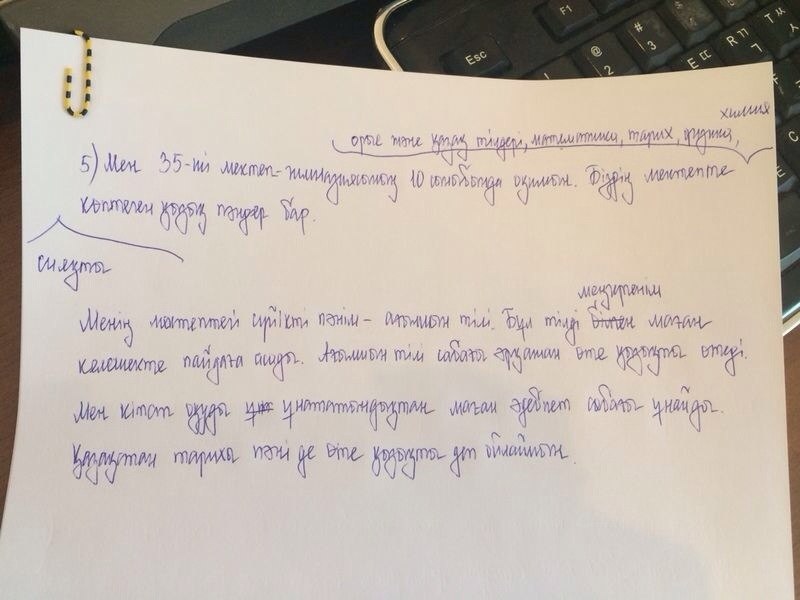 Esc
F1
@ 2
# 3
химия
орыс және қазақ тілдері, математика, тарих, физика,
5) Мен 35-ші мектеп-гимназиясының 10 сыныбында оқимын. Біздің мектепте
көптеген қызық пәндер бар.
сияқты
меңгергенім
Менің мектептегі сүйікті пәнім - ағылшын тілі. Бұл тілді білген маған
келешекте пайдаға асады. Ағылшын тілі сабағы әрқашан өте қызықты өтеді.
Мен кітап оқуды ұнататындықтан маған әдебиет сабағы ұнайды.
Қазақстан тарихы пәні де өте қызықты деп ойлаймын.